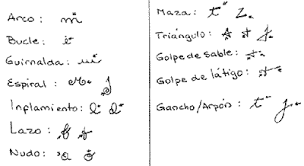 Arco: m
Bucle: e
Guirnalda: m
Espiral:
Inflamiento:
Lazo:
Nudo:
Maza: t Z.
Triángulo:
Golpe de sable: t
Golpe de látigo: t
Gancho/Arpón: t